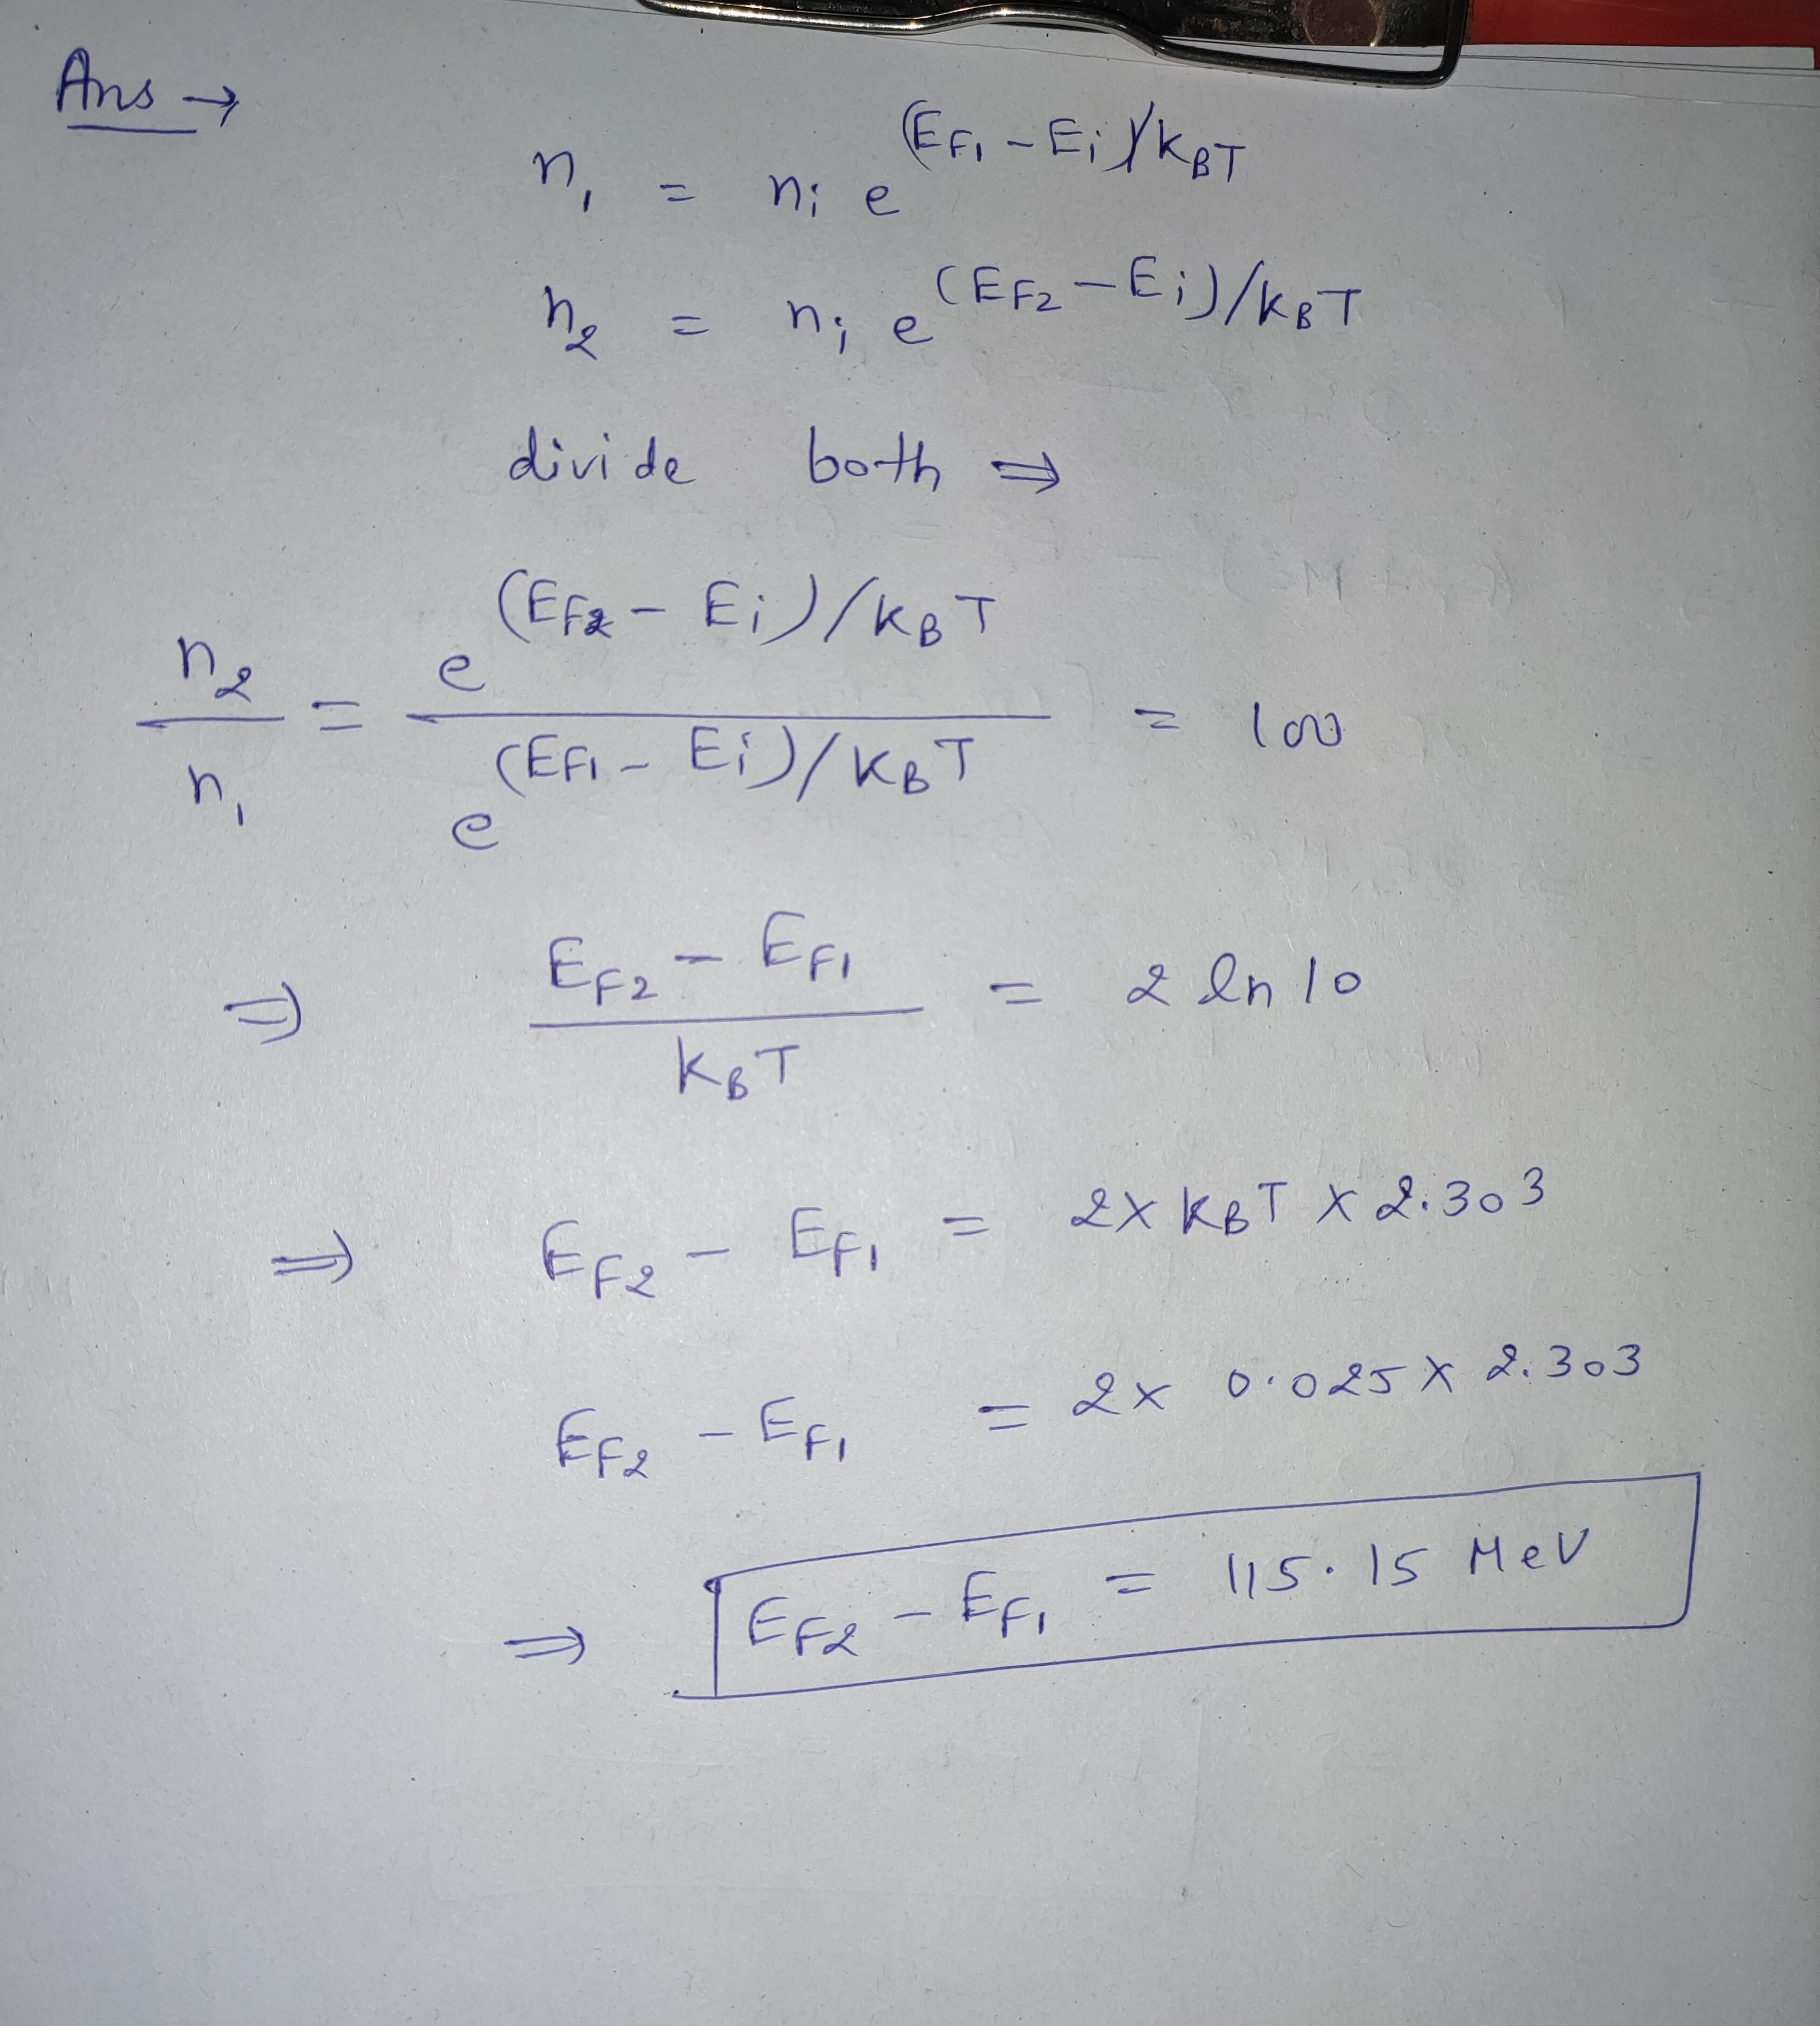 Ans →
n₁ = nᵢ e^(E_F₁ - Eᵢ)/k_BT
n₂ = nᵢ e^(E_F₂ - Eᵢ)/k_BT
divide both ⇒
n₂/n₁ = e^(E_F₂ - Eᵢ)/k_BT / e^(E_F₁ - Eᵢ)/k_BT = 100
⇒ (E_F₂ - E_F₁)/k_BT = 2 ln 10
⇒ E_F₂ - E_F₁ = 2 × k_BT × 2.303
E_F₂ - E_F₁ = 2 × 0.025 × 2.303
⇒ E_F₂ - E_F₁ = 115.15 MeV